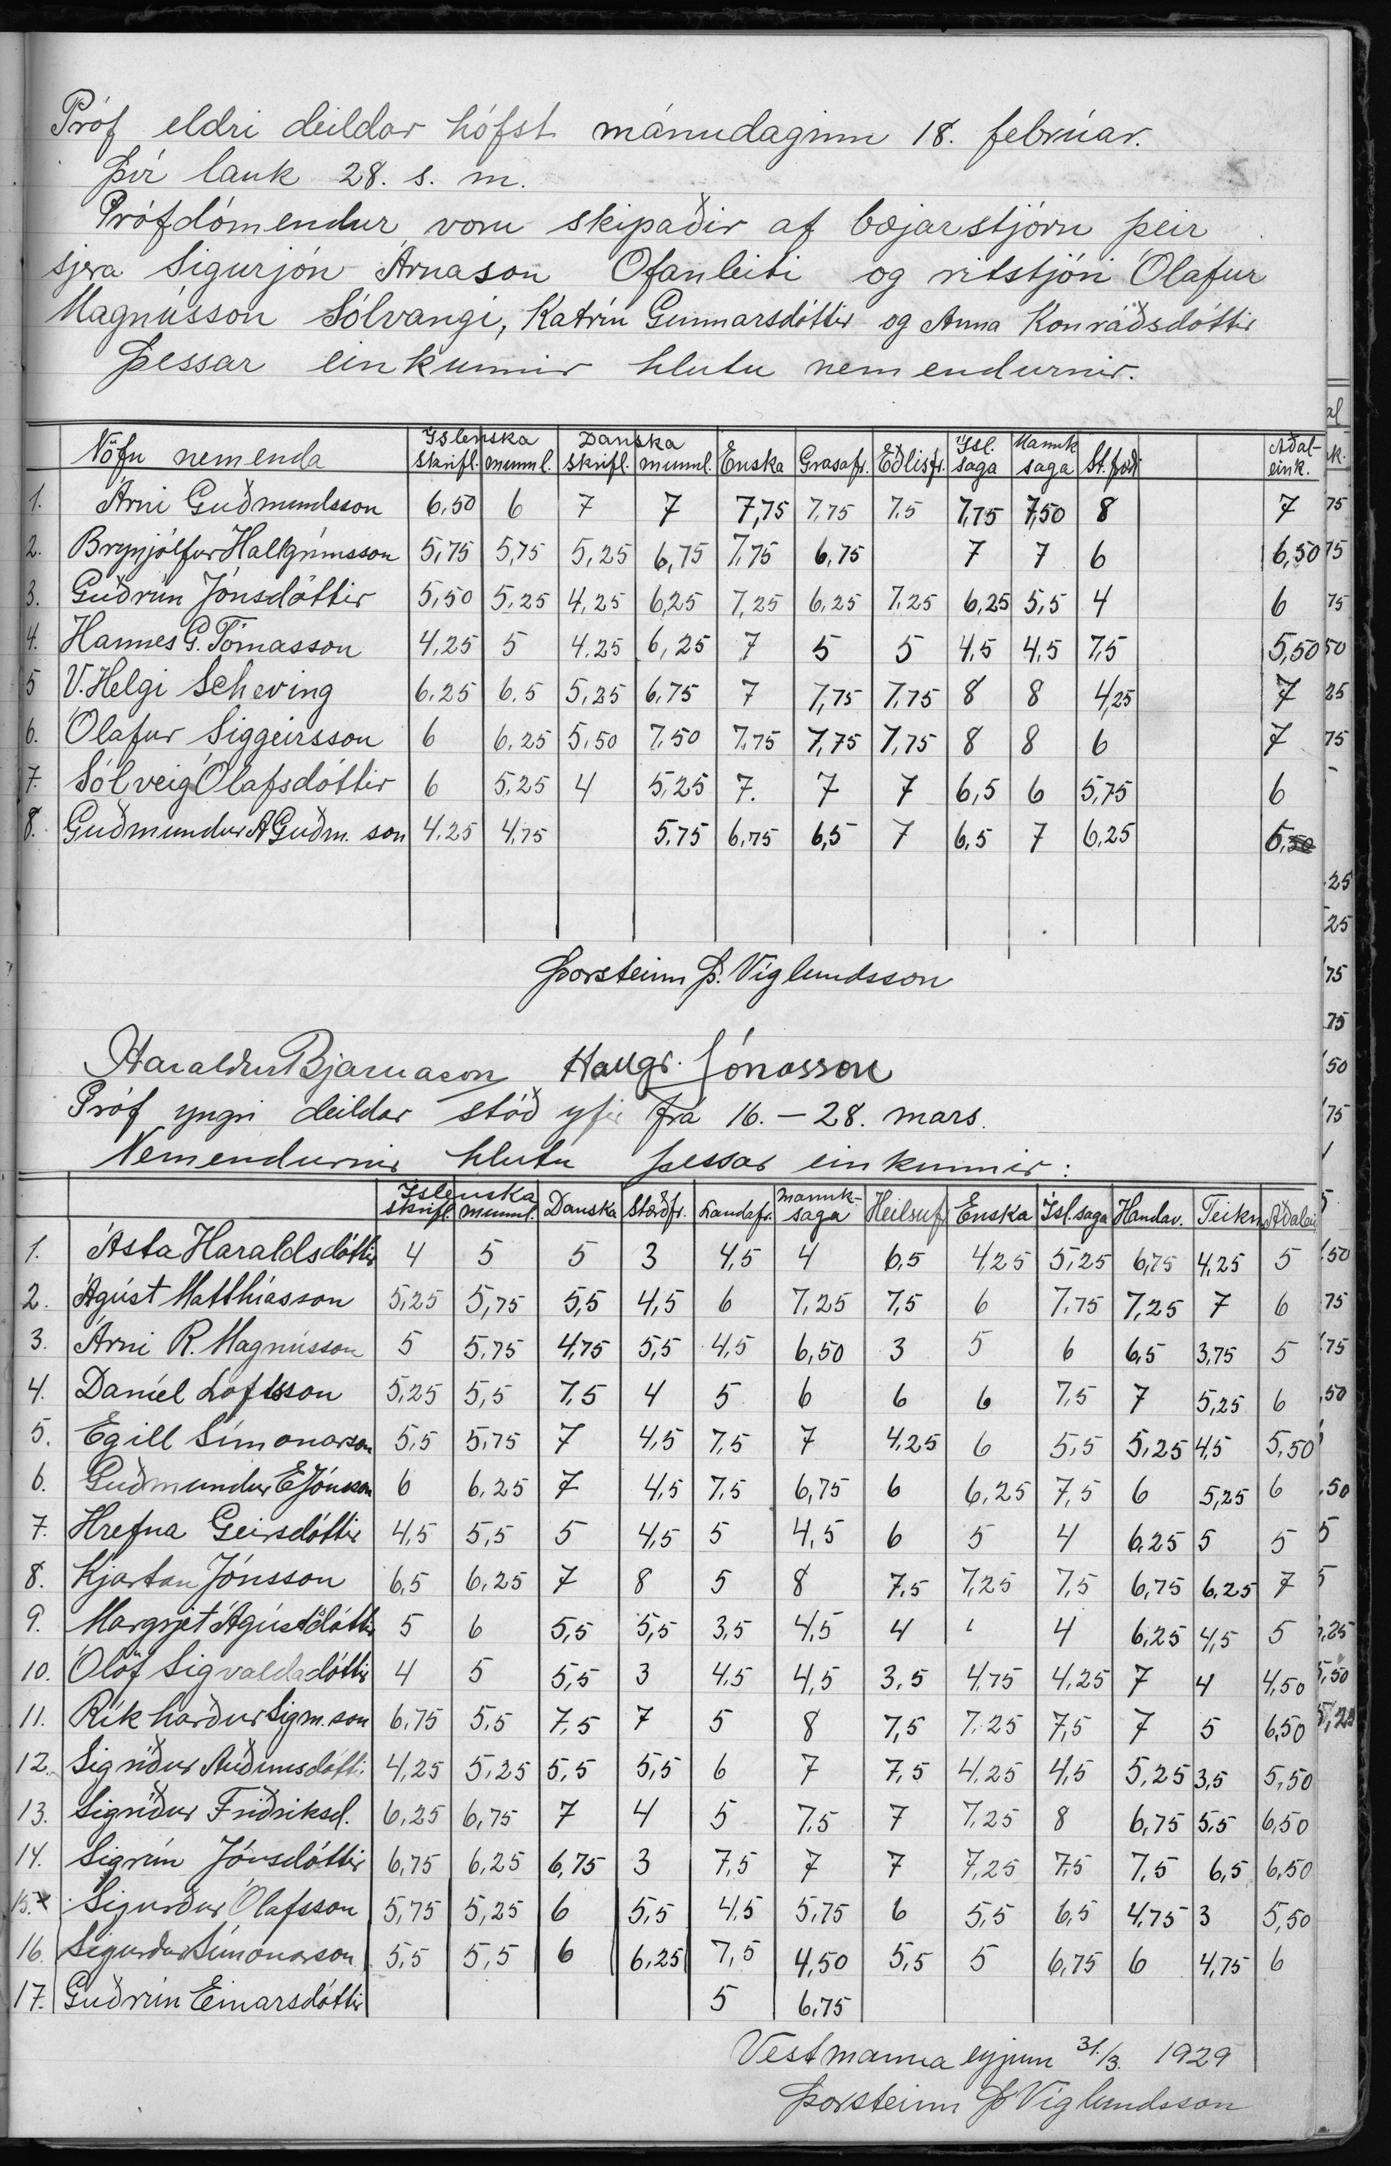 Próf eldri deildar hófst mánudaginn 18. febrúar.
Því lauk 28. s. m.
Prófdómendur voru skipaðir af bæjarstjórn þeir
sjera Sigurjón Árnason Ofanleiti og ritstjóri Ólafur
Magnússon Sólvangi, Katrín Gunnarsdóttir og Anna Konráðsdóttir
Þessar einkunnir hlutu nemendurnir.
Nöfn nemenda Íslenska skrifl. munnl. Danska skrifl. munnl. Enska Grasafr. Eðlisfr. Ísl. saga Mannk saga St.fræði Aðal-eink.
1. Árni Guðmundsson 6,50 6 7 7 7,75 7,75 7,5 7,75 7,50 8 7
2. Brynjólfur Hallgrímsson 5,75 5,75 5,25 6,75 7,75 6,75 7 7 6 6,50
3. Guðrún Jónsdóttir 5,50 5,25 4,25 6,25 7,25 6,25 7,25 6,25 5,5 4 6
4. Hannes G. Tómasson 4,25 5 4,25 6,25 7 5 5 4,5 4,5 7,5 5,50
5 V. Helgi Scheving 6,25 6,5 5,25 6,75 7 7,75 7,75 8 8 4,25 7
6. Ólafur Siggeirsson 6 6,25 5,50 7,50 7,75 7,75 7,75 8 8 6 7
7. Sólveig Ólafsdóttir 6 5,25 4 5,25 7. 7 7 6,5 6 5,75 6
8. Guðmundur A Guðm. son 4,25 4,75 5,75 6,75 6,5 7 6,5 7 6,25 6,50
Þorsteinn Þ. Víglundsson
Haraldur Bjarnason Hallgr. Jónasson
Próf yngri deildar stóð yfir frá 16. – 28. mars.
Nemendurnir hlutu þessar einkunnir:
Íslenska skrifl. munnl. Danska Stærðfr. Landafr. mannk-saga Heilsuf Enska Ísl. saga Handav. Teikn. Aðalei
1. Ásta Haraldsdóttir 4 5 5 3 4,5 4 6,5 4,25 5,25 6,75 4,25 5
2. Ágúst Matthíasson 5,25 5,75 5,5 4,5 6 7,25 7,5 6 7,75 7,25 7 6
3. Árni R. Magnússon 5 5,75 4,75 5,5 4,5 6,50 3 5 6 6,5 3,75 5
4. Daníel Loftsson 5,25 5,5 7,5 4 5 6 6 6 7,5 7 5,25 6
5. Egill Símonarson 5,5 5,75 7 4,5 7,5 7 4,25 6 5,5 5,25 4,5 5,50
6. Guðmundur E Jónsson 6 6,25 7 4,5 7,5 6,75 6 6,25 7,5 6 5,25 6
7. Hrefna Geirsdóttir 4,5 5,5 5 4,5 5 4,5 6 5 4 6,25 5 5
8. Kjartan Jónsson 6,5 6,25 7 8 5 8 7,5 7,25 7,5 6,75 6,25 7
9. Margrjet Ágústsdóttir 5 6 5,5 5,5 3,5 4,5 4 4 6,25 4,5 5
10. Ólöf Sigvaldadóttir 4 5 5,5 3 4,5 4,5 3,5 4,75 4,25 7 4 4,50
11. Ríkharður Sigm.son 6,75 5,5 7,5 7 5 8 7,5 7,25 7,5 7 5 6,50
12. Sigríður Auðunsdótti 4,25 5,25 5,5 5,5 6 7 7,5 4,25 4,5 5,25 3,5 5,50
13. Sigríður Friðriksd. 6,25 6,75 7 4 5 7,5 7 7,25 8 6,75 5,5 6,50
14. Sigrún Jónsdóttir 6,75 6,25 6,75 3 7,5 7 7 7,25 7,5 7,5 6,5 6,50
15. Sigurður Ólafsson 5,75 5,25 6 5,5 4,5 5,75 6 5,5 6,5 4,75 3 5,50
16. Sigurður Símonarson 5,5 5,5 6 6,25 7,5 4,50 5,5 5 6,75 6 4,75 6
17. Guðrún Einarsdóttir 5 6,75
Vestmannaeyjum 31./3. 1929
Þorsteinn Þ Víglundsson